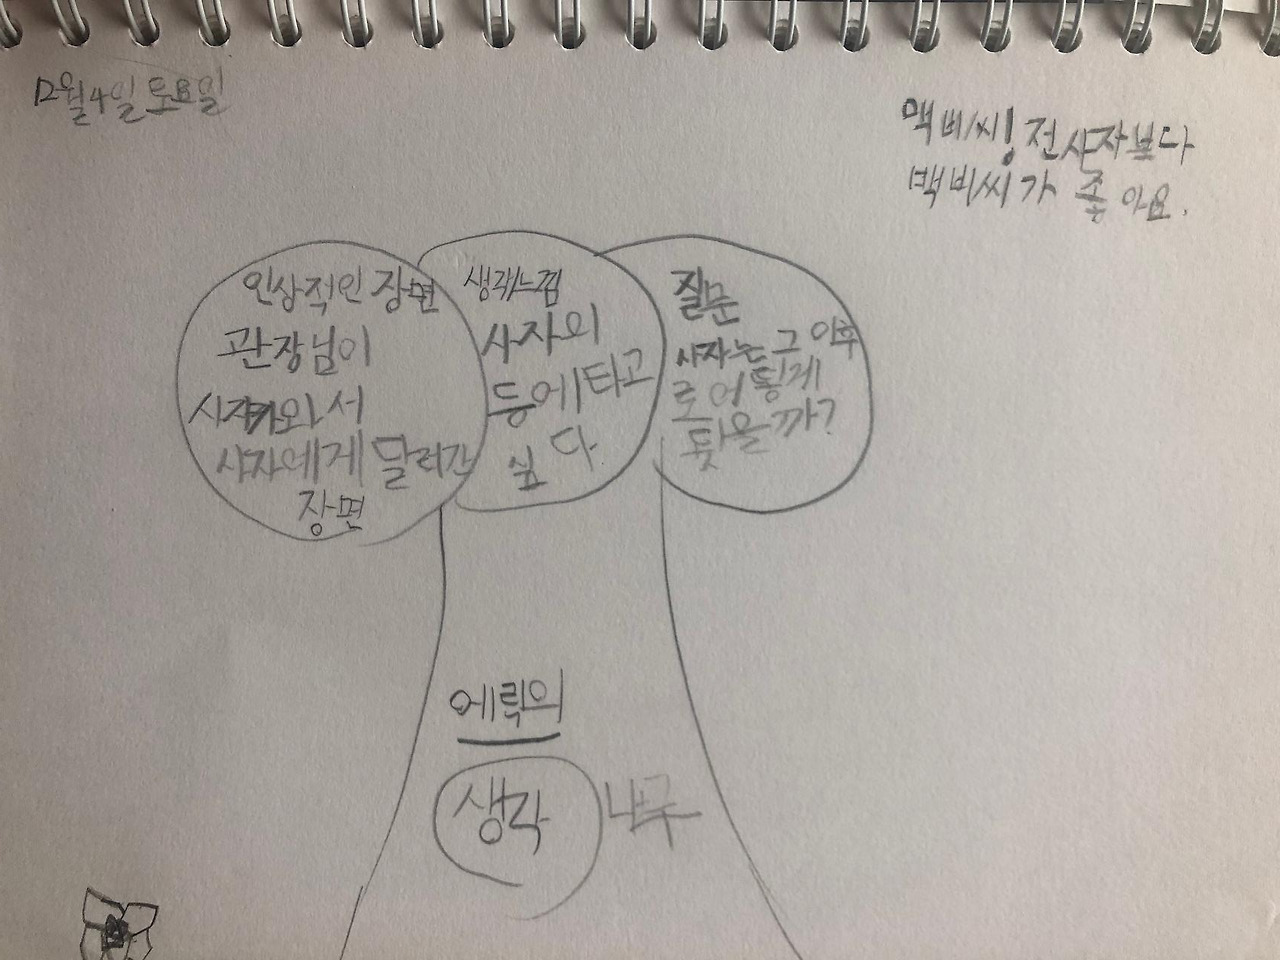 12월4일토요일
맥비씨! 전 사자보다
맥비씨가 좋아요.
인상적인 장면
관장님이
사자가와서
사자에게 달려간
장면
생각/느낌
사자의
등에타고
싶다.
질문
사자는 그 이후
로 어떻게
됬을까?
에릭의
생각 나무